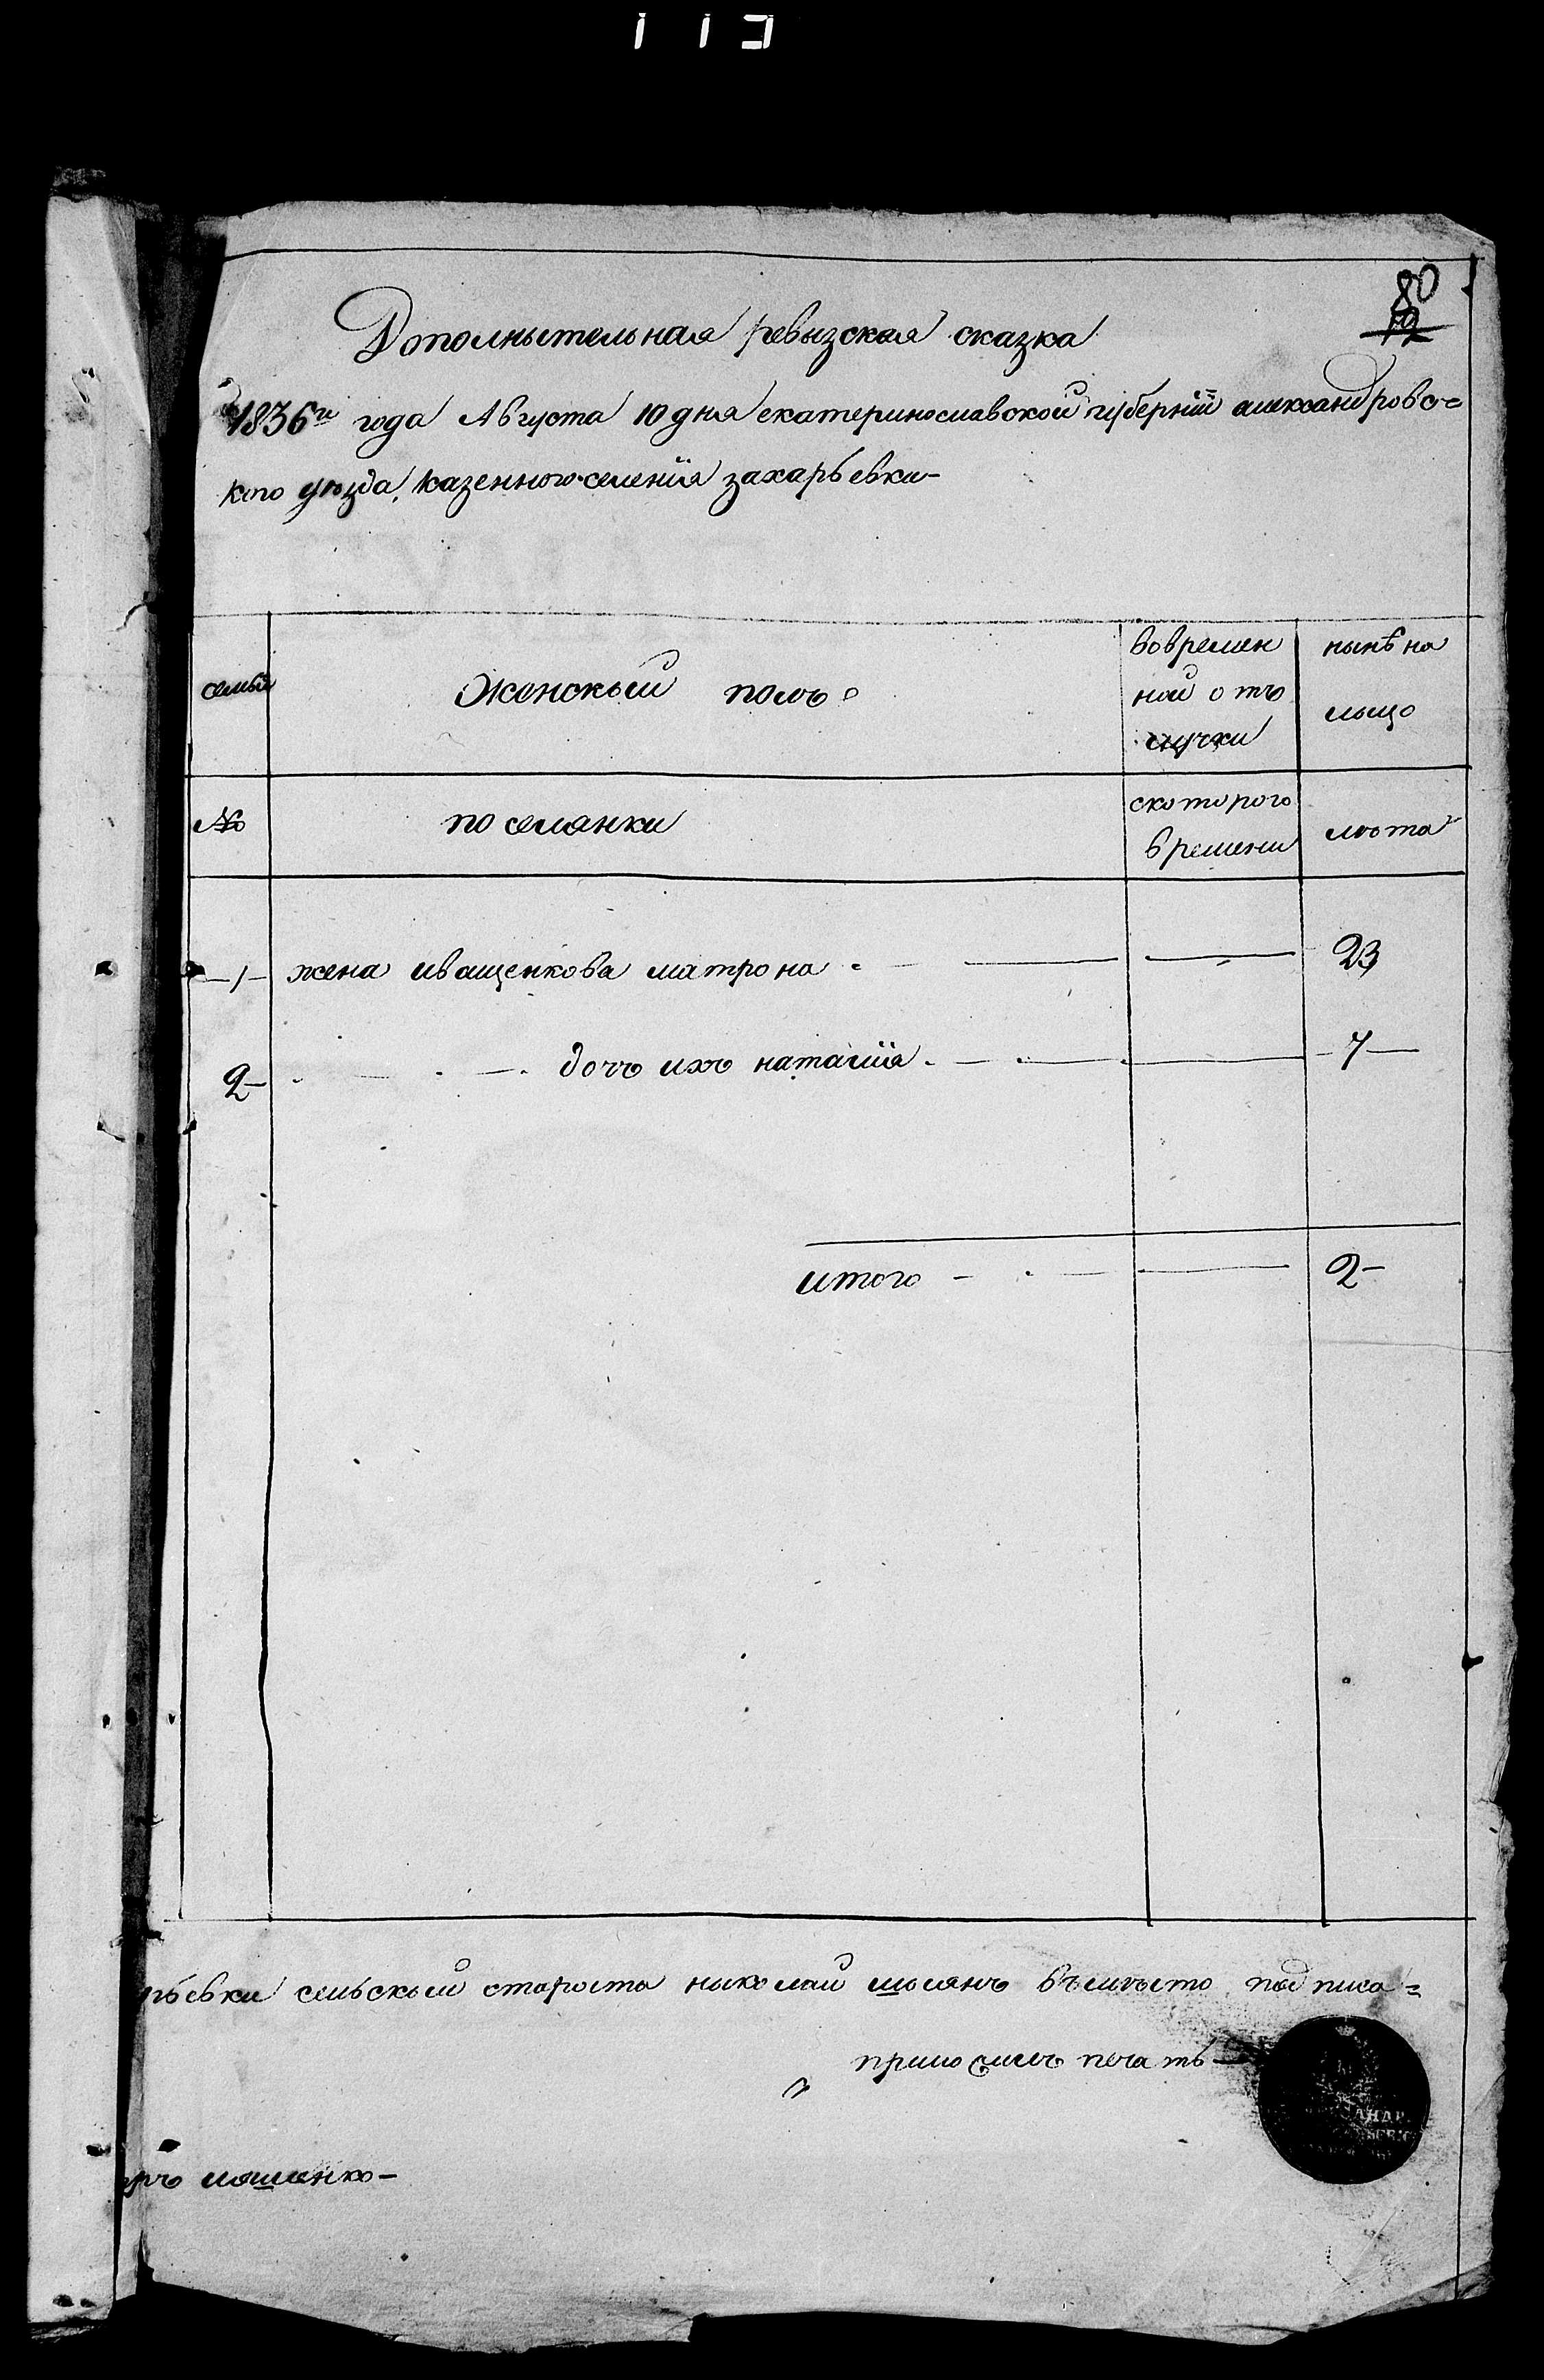 113
80
Дополнытельная ревызская сказка
1836го года Августа 10 дня екатеринославской губернїи александровс=
кого уѣзда, казенного селенїя захарьевки-
семьи
Женскый полъ
вовремен
ной отъ
лучки
нынѣ на
лыцо
№
поселянки
скоторого
времени
лѣта
-1- жена иващенкова матрона - — 23
2- дочь ихъ наталїя - — 7
итого - — 2-
рьевки сельскый староста ныколай въмѣсто подписа=
приложилъ печать
ръ